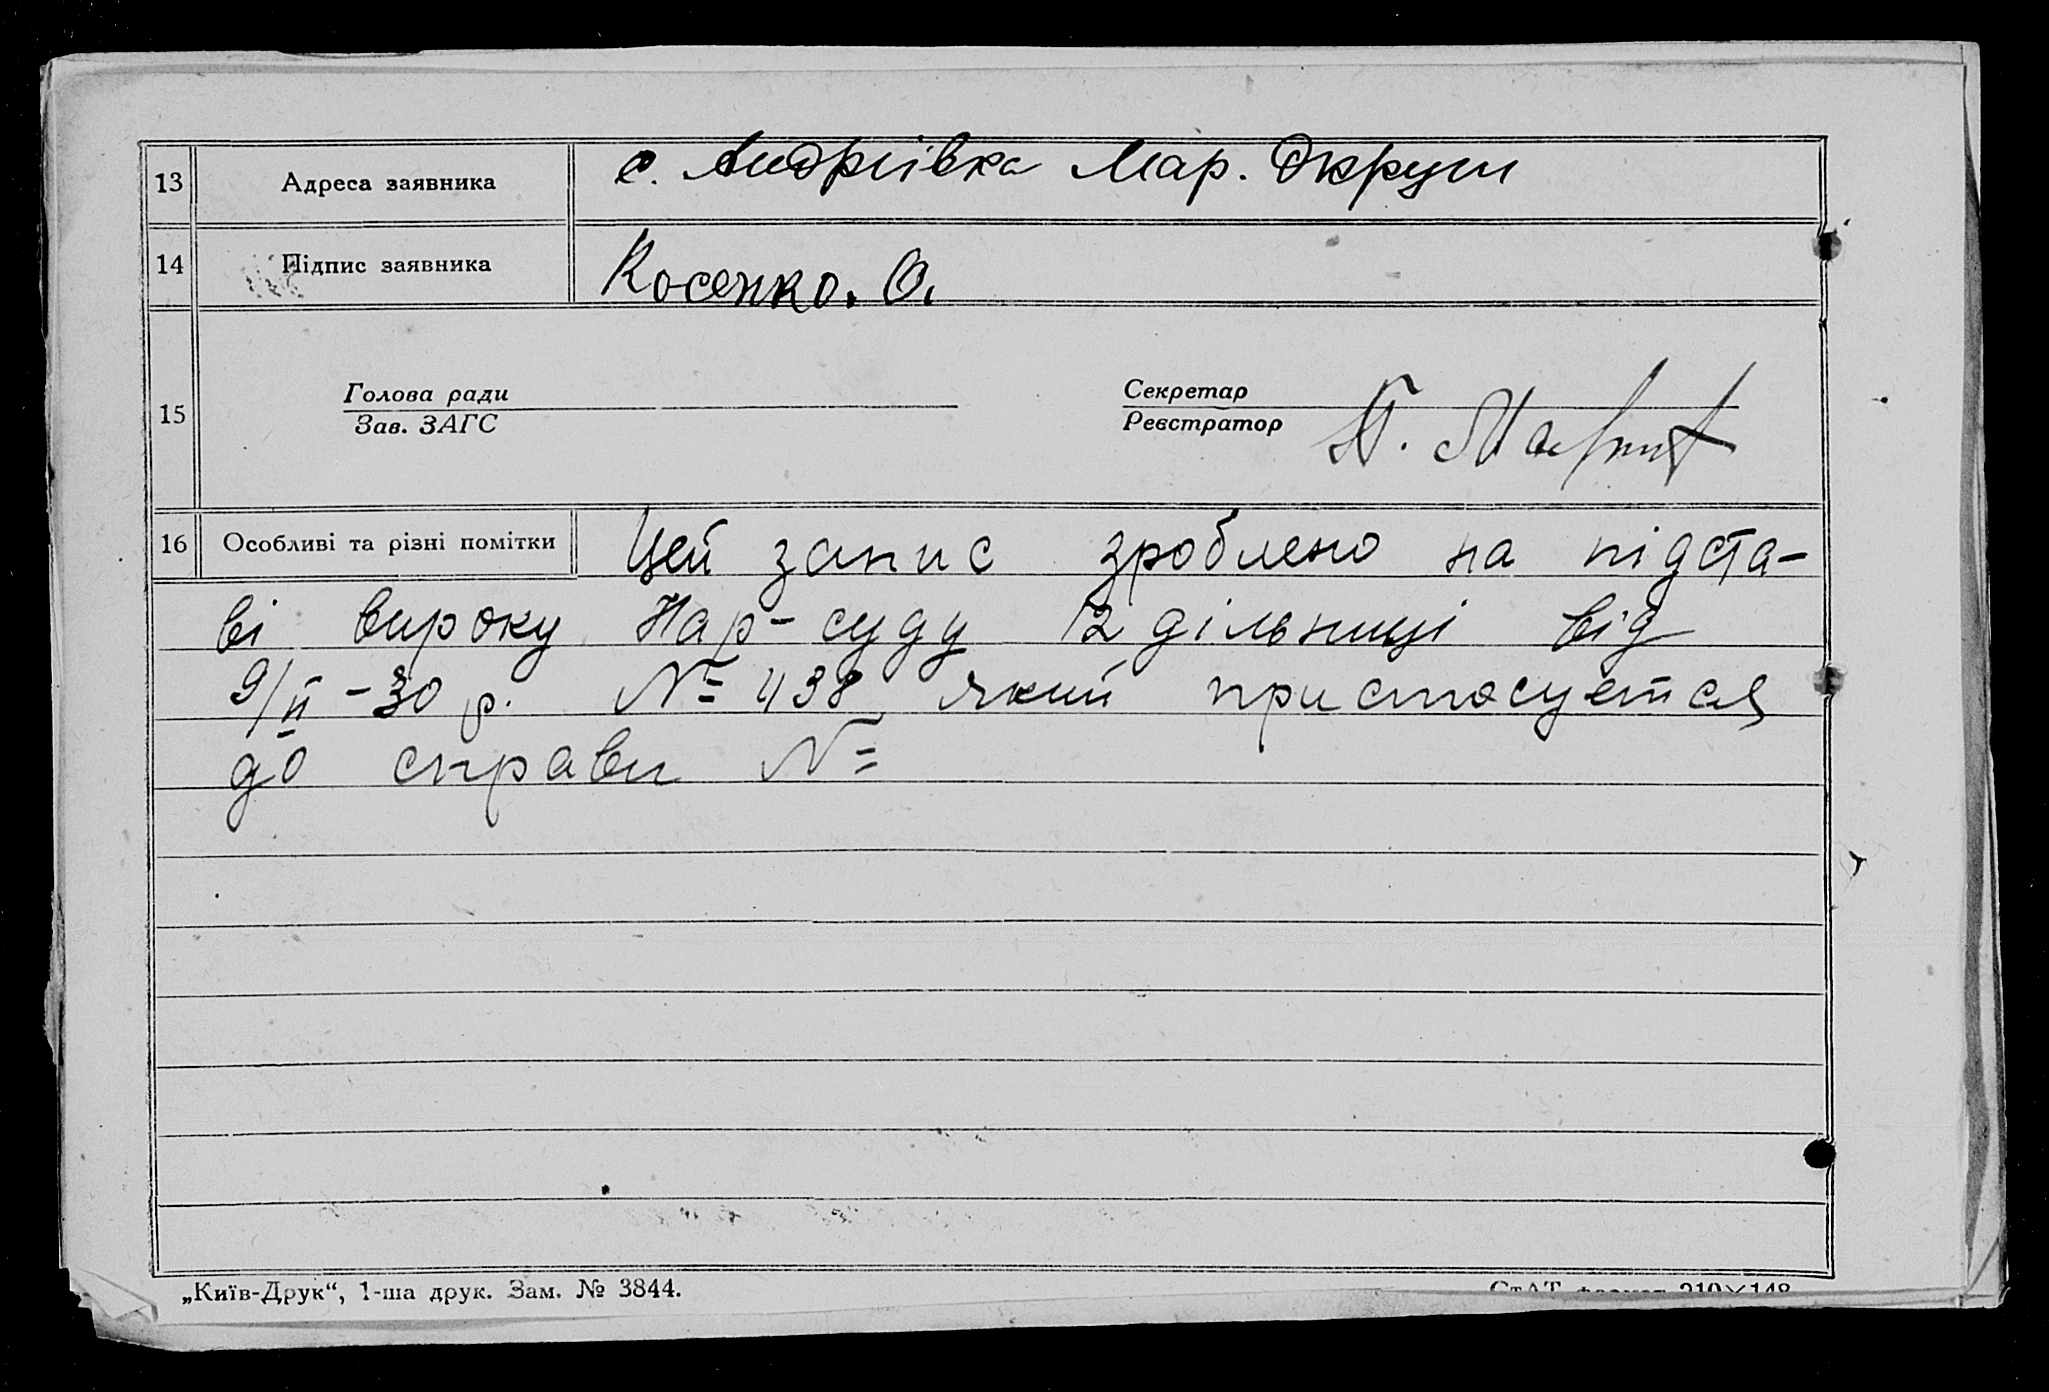 13 Адреса заявника с. Андріївка Мар. Округи
14 Підпис заявника Косенко. О.
Голова ради Секретар
15 Зав. ЗАГС Реєстратор П.
16 Особливі та різні помітки Цей запис зроблено на підста-
ві вироку Нар-суду 12 дільниці від
9/ІІ-30 р. № 438 який пристосується
до справи №
„Київ-Друк“, 1-ша друк. Зам. № 3844. СтАТ формат 210×148